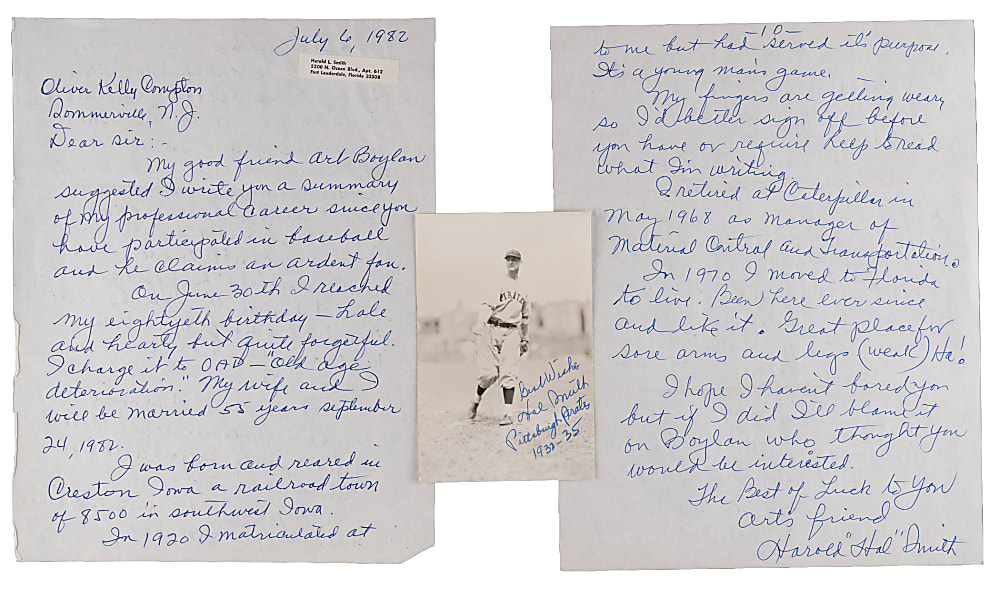 July 6, 1982
Harold L. Smith
5200 N. Ocean Blvd., Apt. 612
Fort Lauderdale, Florida 33308
Oliver Kelly Compton
Sommerville, N.J.
Dear sir:-
My good friend Art Boylan
suggested I write you a summary
of my professional career since you
have participated in baseball
and he claims an ardent fan.
On June 30th I reached
my eightyeth birthday – hale
and hearty but quite forgetful.
I charge it to OAD – "Old age
deterioration." My wife and I
will be married 55 years september
24, 1982.
I was born and reared in
Creston Iowa a railroad town
of 8500 in southwest Iowa.
In 1920 I matriculated at
PIRATES
Best Wishes
Hal Smith
Pittsburgh Pirates
1932-35
-10-
to me but had served it's purpose.
It's a young man's game.
My fingers are getting weary
so I'd better sign off before
you have or require help to read
what I'm writing.
I retired at Caterpillar in
May 1968 as manager of
Material Control and Transportation.
In 1970 I moved to Florida
to live. Been here ever since
and like it. Great place for
sore arms and legs (weak) Ha!
I hope I haven't bored you
but if I did I'll blame it
on Boylan who thought you
would be interested.
The Best of Luck to You
Art's friend
Harold "Hal" Smith